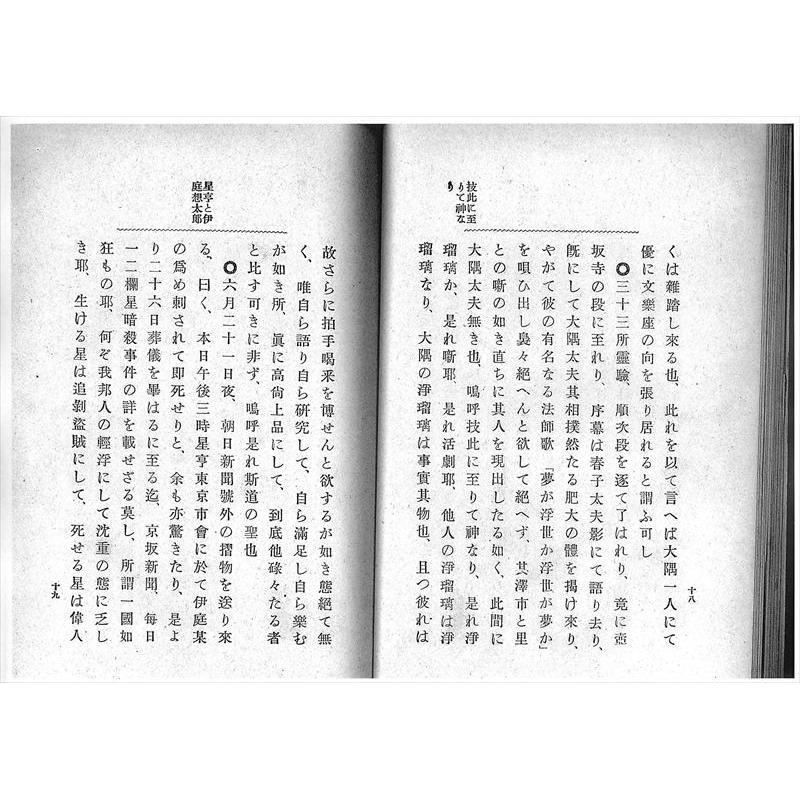 技此に至
りて神な
り
くは雜踏し來る也、此れを以て言へば大隅一人にて
優に文樂座の向を張り居れると謂ふ可し
◎三十三所靈驗、順次段を逐て了はれり、竟に壺
坂寺の段に至れり、序幕は春子太夫影にて語り去り、
旣にして大隅太夫其相撲然たる肥大の體を揭け來り、
やがて彼の有名なる法師歌「夢が浮世か浮世が夢か」
を唄ひ出し裊々絕へんと欲して絕へず、其澤市と里
との噺の如き直ちに其人を現出したる如く、此間に
大隅太夫無き也、嗚呼技此に至りて神なり、是れ淨
瑠璃か、是れ噺耶、是れ活劇耶、他人の淨瑠璃は淨
瑠璃なり、大隅の淨瑠璃は事實其物也、且つ彼れは
十八
星亨と伊
庭想太郎
故さらに拍手喝釆を博せんと欲するが如き態絕て無
く、唯自ら語り自ら硏究して、自ら滿足し自ら樂む
が如き所、眞に高尙上品にして、到底他碌々たる者
と比す可きに非ず、嗚呼是れ斯道の聖也
◎六月二十一日夜、朝日新聞號外の摺物を送り來
る、曰く、本日午後三時星亨東京市會に於て伊庭某
の爲め刺されて卽死せりと、余も亦驚きたり、是よ
り二十六日葬儀を畢はるに至る迄、京坂新聞、每日
一二欄星暗殺事件の詳を載せざる莫し、所謂一國如
狂もの耶、何ぞ我邦人の輕浮にして沈重の態に乏し
き耶、生ける星は追剝盜賊にして、死せる星は偉人
十九